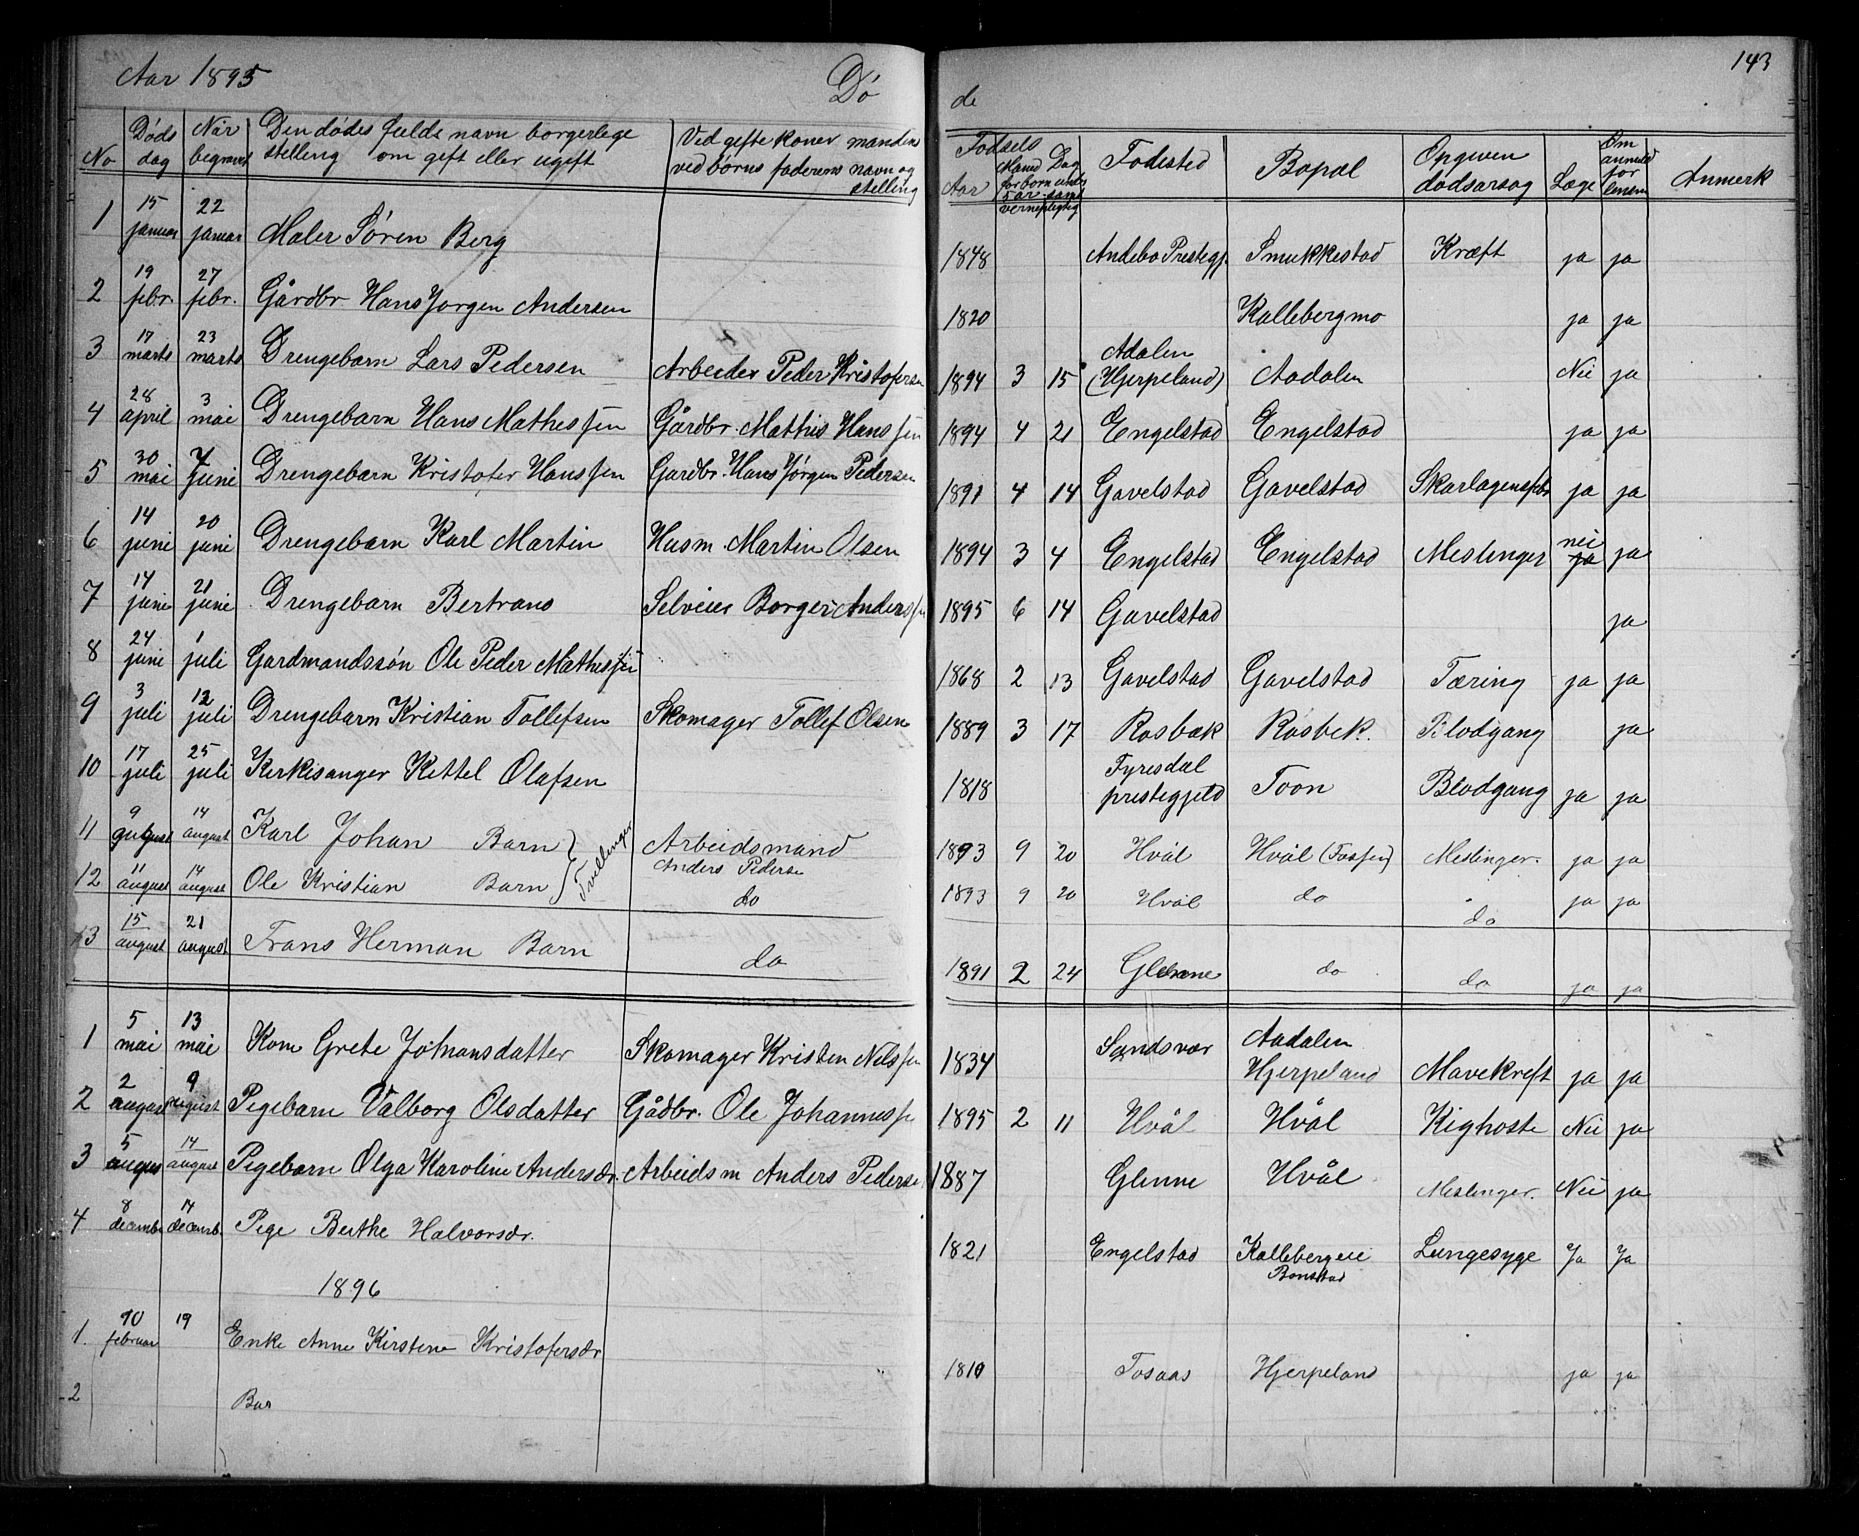 Aar 1895 Dø de 143
No Døds dag Når begravet Den dødes fulde navn borgerlege stelling om gift eller ugift Ved gifte koner mandens ved børns faderens navn og stelling Fodsels Aar Maned Dag for børn under 5 år samt vernepligtig Fodested Bopæl Opgiven dødsarsag Læge Anmerk
1 15 januar 22 januar Maler Søren Berg 1848 Andebo Prestegj. Smukkestad Kræft ja ja
2 19 febr. 27 febr. Gårdbr. Hans Jorgen Andersen 1820 Kallebergmo ja ja
3 17 marts 23 marts Drengebarn Lars Pedersen Arbeider Peder Kristofersen 1894 3 15 Adalen (Hjerpeland) Aadalen Nei ja
4 28 april 3 mai Drengebarn Hans Mathessen Gårdbr. Mathis Hanssen 1894 4 21 Engelstad Engelstad ja ja
5 30 mai 7 juni Drengebarn Kristofer Hanssen Gardbr. Hans Jørgen Pedersen 1891 4 14 Gavelstad Gavelstad Skarlagensfebr ja ja
6 14 juni 20 juni Drengebarn Karl Martin Husm. Martin Olsen 1894 3 4 Engelstad Engelstad Meslinger nei ja ja
7 14 juni 21 juni Drengebarn Bertrans Selveier Borger Anderssen 1895 6 14 Gavelstad ja
8 24 juni 1 juli Gardmandssøn Ole Peder Mathessen 1868 2 13 Gavelstad Gavelstad Tæring ja ja
9 3 juli 12 juli Drengebarn Kristian Tollefsen Skomager Tollef Olsen 1889 3 17 Rosbæk Rosbek. Blodgang ja
10 17 juli 25 juli Kirkisanger Kittel Olafsen 1818 Fyresdal prestegjeld Toon Blodgang ja ja
11 9 august 14 august Karl Johan Barn Tvillinger Arbeidsmand Anders Pederse 1893 9 20 Hvål Hvål Meslinger. ja ja
12 11 august 14 august Ole Kristian Barn do 1893 9 20 Hvål do do ja ja
13 15 august 21 august Frans Herman Barn do 1891 2 24 Glenne do do ja ja
1 5 mai 13 mai Kone Grete Johansdatter Skomager Kristen Nilssen 1834 Sandsvær Aadalen Hjerpeland Mavekreft ja ja
2 2 august 9 august Pigebarn Valborg Olsdatter Gådbr. Ole Johannesse 1895 2 11 Hvål Hvål Kighoste Nei ja
3 5 augus 14 august Pigebarn Olga Karoline Andersdr. Arbeidsm Anders Pederse 1887 Glenne Hvål Meslinger. Nei ja
4 8 decembr 14 decemb. Pige Berthe Halvorsdr. 1821 Engelstad Kallebergeie Bonstad Lungesyge Ja Ja
1896
1. 10 februar 19 Enke Anne Kirstene Kristofersdr 1810 Tosaas Hjerpeland ja ja
2 Bar